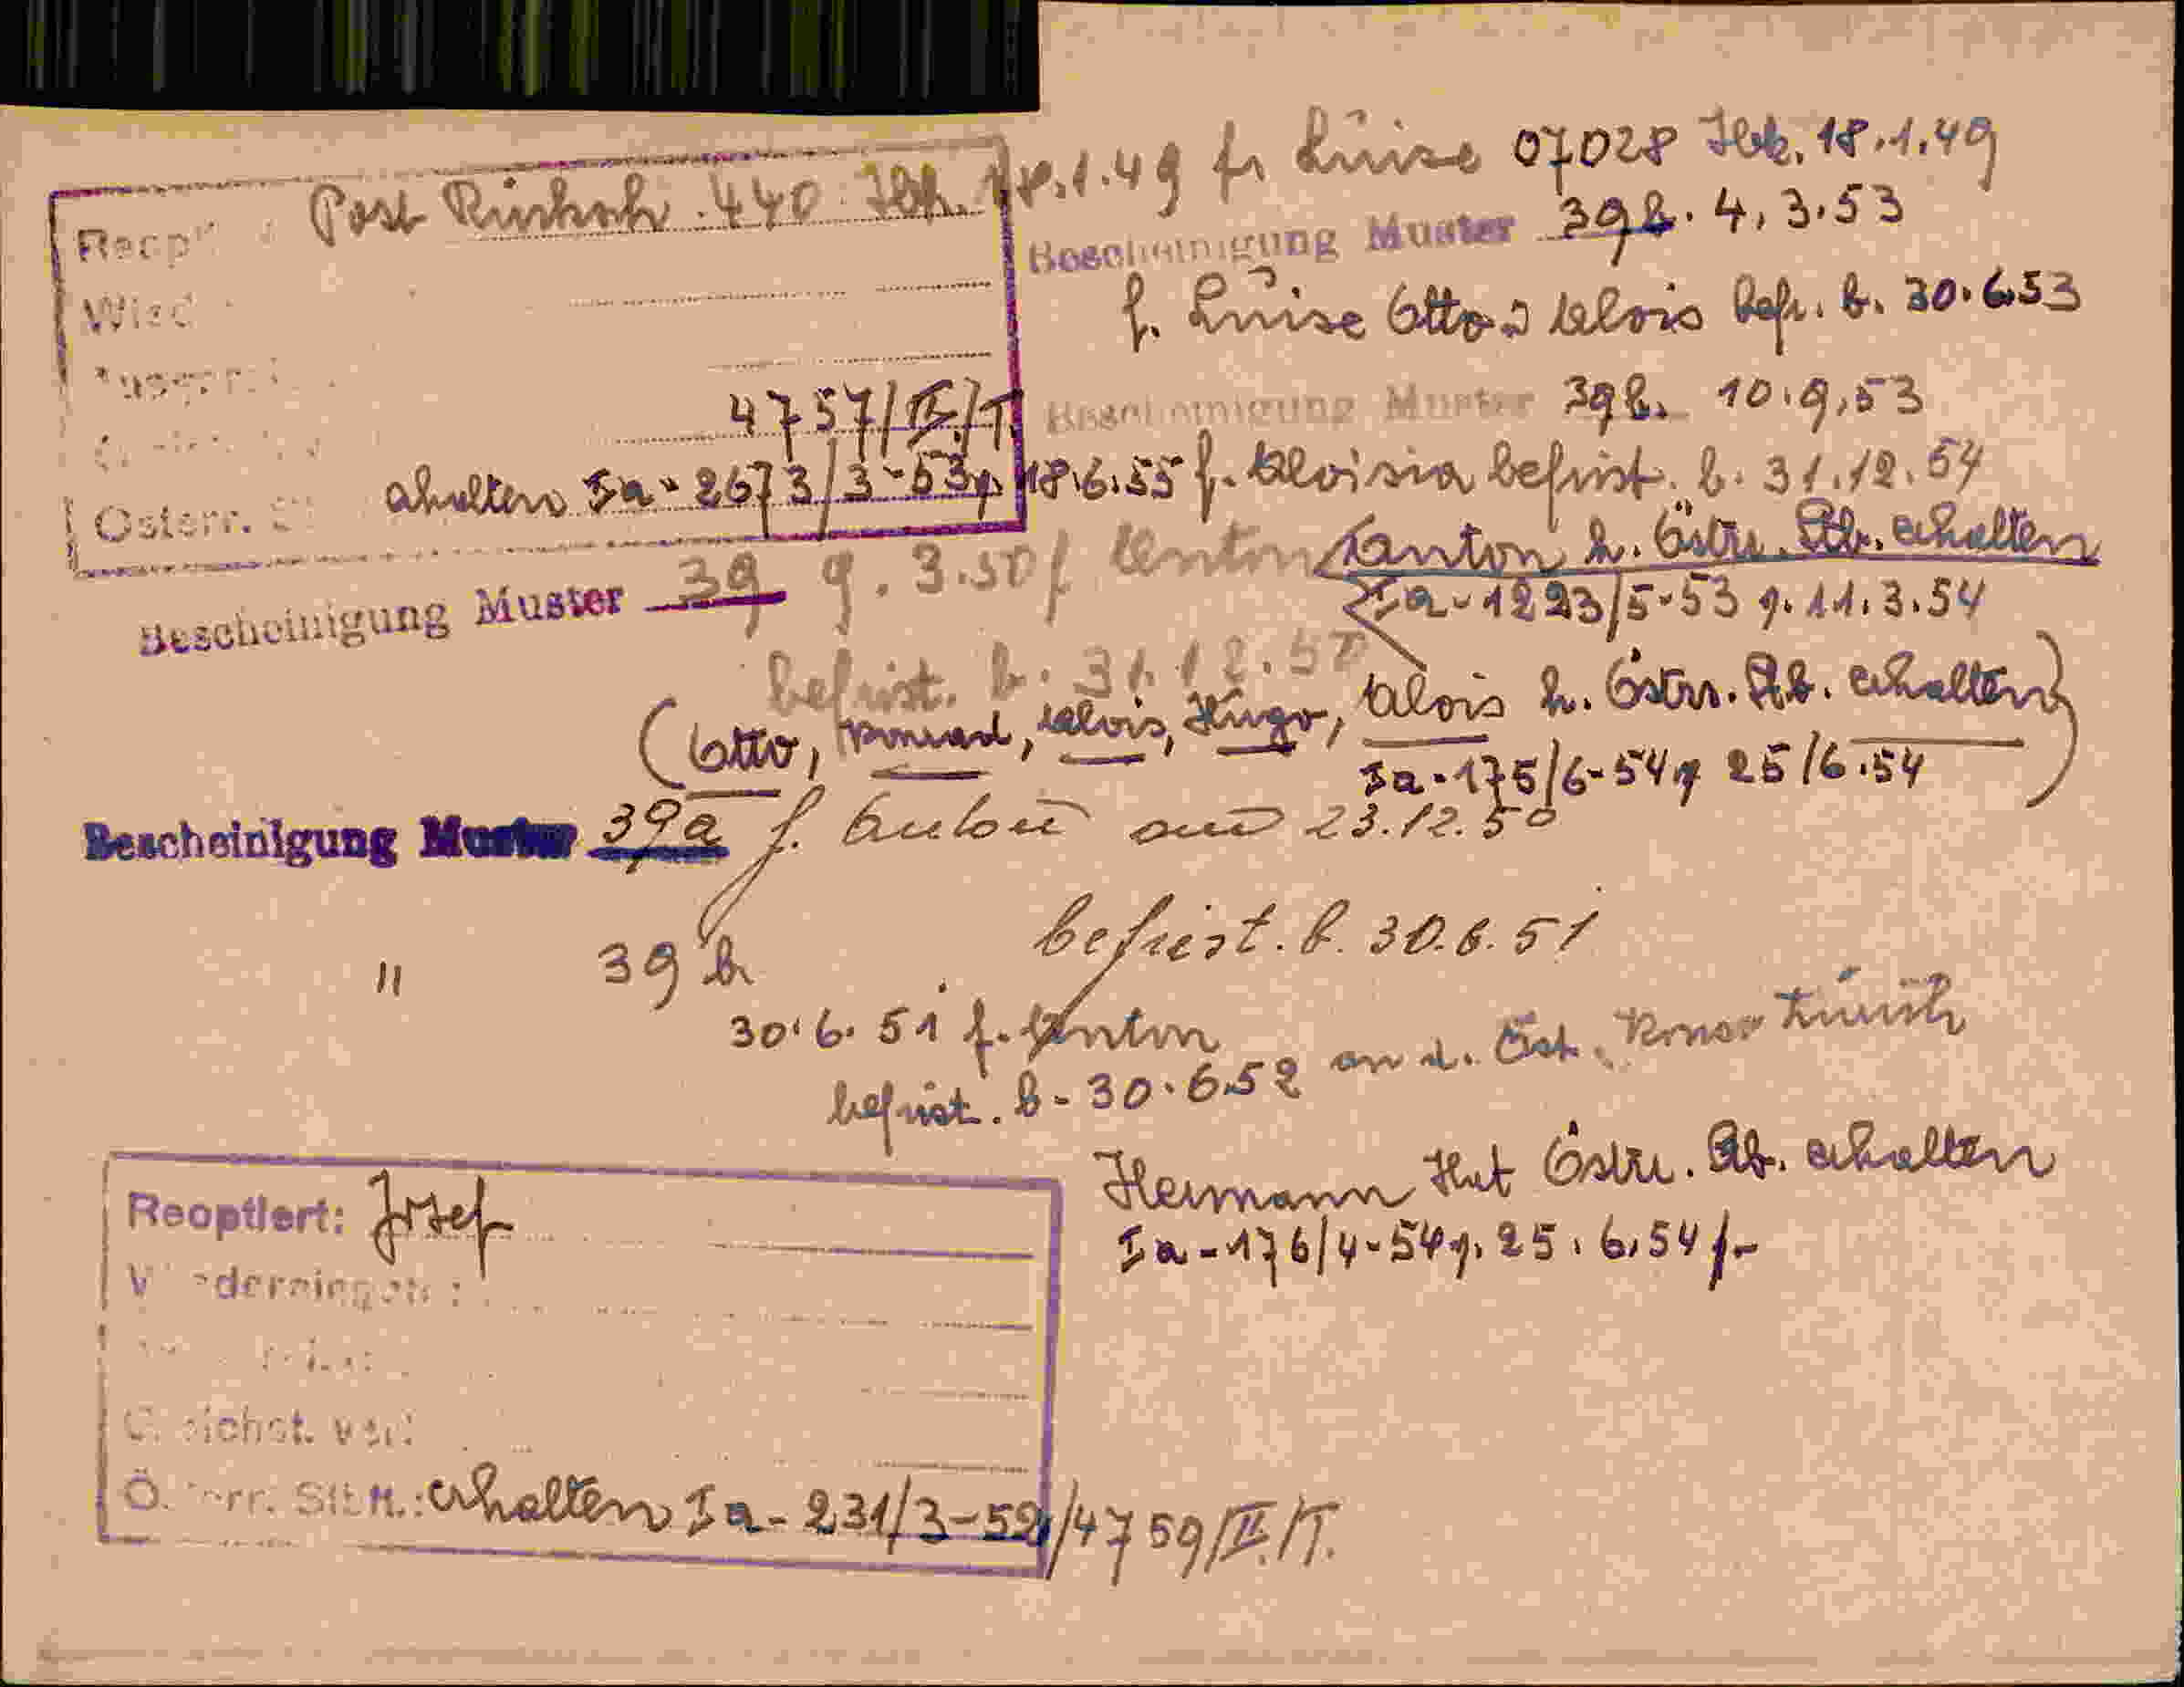 Post Rückok. 440 Ibk. 18.1.49 f. Luise 07028 Ibk. 18.1.49
Bescheinigung Muster 39b. 4.3.53
f. Luise Otto u Alois befr. b. 30.6.53
4757/II/T.
Bescheinigung Muster 39b. 10.9.53
Österr. erhalten Ia-2673/3-53 v. 18.6.55 f. Aloisia befrist. b. 31.12.54
Anton h. Östrr. Stb. erhalten
Bescheinigung Muster 39 9.3.50 f. Anton
Ia-1223/5-53 v. 11.3.54
befrist. b. 31.12.50
(Otto, Konrad, Alois, Hugo, Alois h. Östrr. Stb. erhalten)
Ia-175/6-54 v. 25/6.54
Bescheinigung Muster 39a f. Anton am 23.12.50
befrist. b. 30.6.51
" 39b
30.6.51 f. Anton
befrist. b. 30.6.52 an d. Öst. Zürich
Hermann Hat Östrr. Stb. erhalten
Ia-176/4-54 v. 25.6.54 f.
Reoptiert: Josef
Wiedereingeb.:
Österr. Stb.: erhalten Ia-231/3-52/4759/II/T.